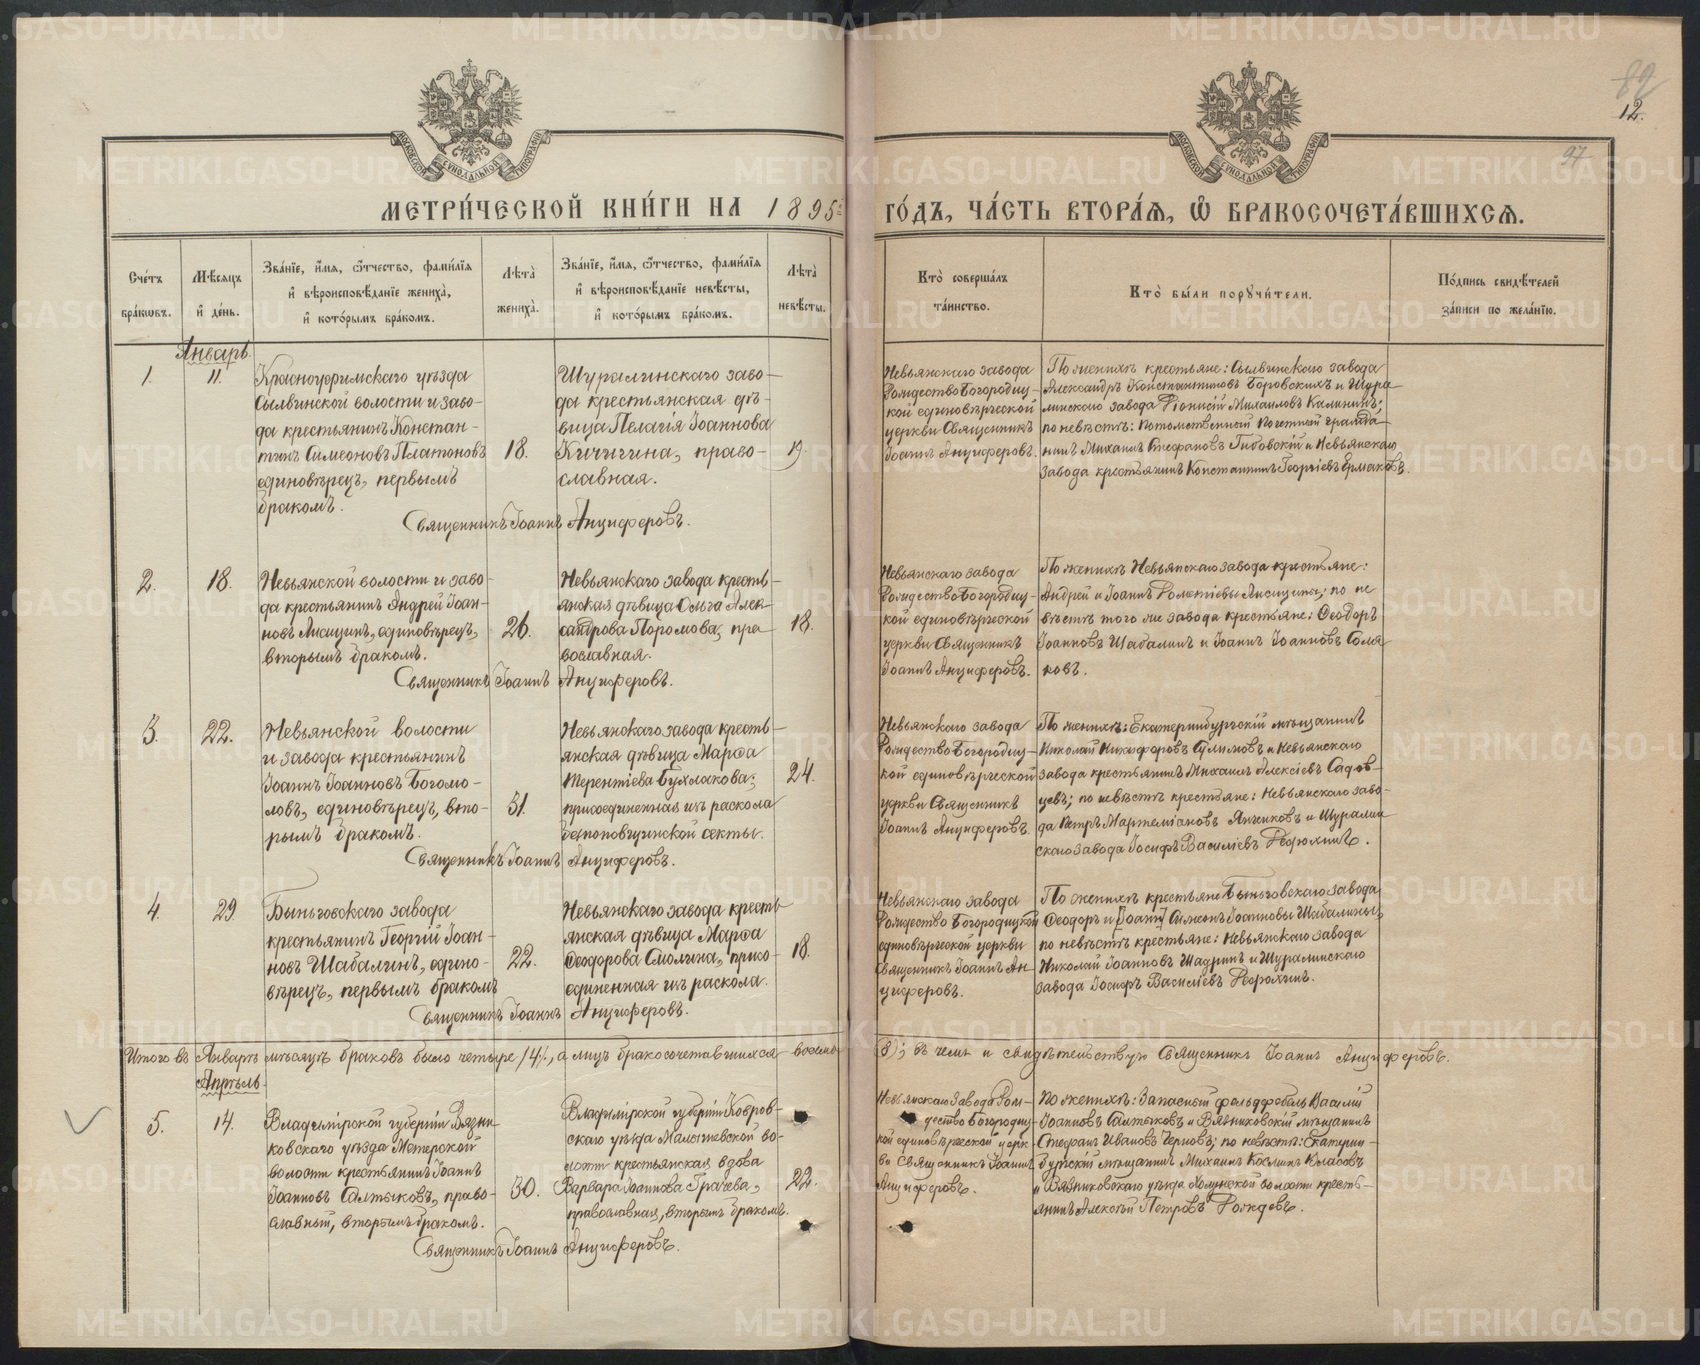 82
12.
97
МОСКОВСКОЙ СѴНОДАЛЬНОЙ ТИПОГРАФІИ
МОСКОВСКОЙ СѴНОДАЛЬНОЙ ТИПОГРАФІИ
МЕТРИ́ЧЕСКОЙ КНИ́ГИ НА 1895й
ГО́ДЪ, ЧА́СТЬ ВТОРА́Ѧ, Ѽ БРАКОСОЧЕТА́ВШИХСѦ.
Сче́тъ бра́кѡвъ.
Мѣ́сѧцъ и҆ де́нь.
Зва́нїе, и҆́мѧ, ѻ҆́тчество, фами́лїѧ и҆ вѣроисповѣ́данїе жениха̀, и҆ кото́рымъ бра́комъ.
Лѣта̀ жениха̀.
Зва́нїе, и҆́мѧ, ѻ҆́тчество, фами́лїѧ и҆ вѣроисповѣ́данїе невѣ́сты, и҆ кото́рымъ бра́комъ.
Лѣта̀ невѣ́сты.
Кто̀ соверша́лъ та́инство.
Кто̀ бы́ли порꙋчи́тели.
По́дпись свидѣ́телей за́писи по жела́нїю.
Январь.
1.
11.
Красноуфимскаго уѣзда
Сылвинской волости и заво-
да крестьянинъ Констан-
тинъ Симеоновъ Платоновъ
единовѣрецъ, первымъ
бракомъ.
18.
Шуралинскаго заво-
да крестьянская дѣ-
вица Пелагія Іоаннова
Кичигина, право-
славная.
19.
Священникъ Іоаннъ Анциферовъ.
Невьянскаго завода
Рождество Богородиц-
кой единовѣрческой
церкви Священникъ
Іоаннъ Анциферовъ.
По женихѣ крестьяне: Сылвинскаго завода
Александръ Константиновъ Боровскихъ и Шура-
линскаго завода Діонисій Михаиловъ Калининъ;
по невѣстѣ: Потомственный Почетный гражда-
нинъ Михаилъ Стефановъ Гибовскій и Невьянскаго
завода крестьянинъ Константинъ Георгіевъ Ермаковъ.
2.
18.
Невьянской волости и заво-
да крестьянинъ Андрей Іоан-
новъ Лисицинъ, единовѣрецъ,
вторымъ бракомъ.
26.
Невьянскаго завода кресть-
янская дѣвица Ольга Алек-
сандрова Поромова, пра-
вославная.
18.
Священникъ Іоаннъ Анциферовъ.
Невьянскаго завода
Рождество Богородиц-
кой единовѣрческой
церкви Священникъ
Іоаннъ Анциферовъ.
По женихѣ Невьянскаго завода крестьяне:
Андрей и Іоаннъ Рометіевы Лисицины; по не
вѣстѣ того же завода крестьяне: Ѳеодоръ
Іоанновъ Шабалинъ и Іоаннъ Іоанновъ Соля
ковъ.
3.
22.
Невьянской волости
и завода крестьянинъ
Іоаннъ Іоанновъ Богомо-
ловъ, единовѣрецъ, вто-
рымъ бракомъ.
31.
Невьянскаго завода кресть-
янская дѣвица Марѳа
Терентіева Бухлакова,
присоединенная изъ раскола
безпоповщинской секты.
24.
Священникъ Іоаннъ Анциферовъ.
Невьянскаго завода
Рождество Богородиц-
кой единовѣрческой
церкви Священникъ
Іоаннъ Анциферовъ.
По женихѣ: Екатеринбургскій мѣщанинъ
Николай Никифоровъ Сулимовъ и Невьянскаго
завода крестьянинъ Михаилъ Алексіевъ Садов-
цевъ; по невѣстѣ крестьяне: Невьянскаго заво-
да Петръ Мартеміановъ Янченковъ и Шуралин
скаго завода Іосифъ Василіевъ Ѳедюхинъ.
4.
29.
Быньговскаго завода
крестьянинъ Георгій Іоан-
новъ Шабалинъ, едино-
вѣрецъ, первымъ бракомъ
22.
Невьянскаго завода кресть
янская дѣвица Марѳа
Ѳеодорова Смолина, присо-
единенная изъ раскола.
18.
Священникъ Іоаннъ Анциферовъ.
Невьянскаго завода
Рождество Богородицкой
единовѣрческой церкви
Священникъ Іоаннъ Ан-
циферовъ.
По женихѣ крестьяне Быньговскаго завода
Ѳеодоръ и [Іоаннъ] Симеонъ Іоанновы Шабалины,
по невѣстѣ крестьяне: Невьянскаго завода
Николай Іоанновъ Шадринъ и Шуралинскаго
завода Іосифъ Василіевъ Ѳедюхинъ.
Итого въ Январѣ мѣсяцѣ браковъ было четыре /4/, а лицъ бракосочетавшихся восемь (8); въ чемъ и свидѣтельствую Священникъ Іоаннъ Анциферовъ.
Апрѣль.
5.
14.
Владимірской губерніи Вязни-
ковскаго уѣзда Мстерской
волости крестьянинъ Іоаннъ
Іоанновъ Салтыковъ, право-
славный, вторымъ бракомъ.
30.
Владимірской губерніи Ковров-
скаго уѣзда Малышевской во-
лости крестьянская вдова
Варвара Іоаннова Грачева,
православная, вторымъ бракомъ.
22.
Священникъ Іоаннъ Анциферовъ.
Невьянскаго Завода Рож-
дество Богородиц-
кой единовѣрческой церк-
ви Священникъ Іоаннъ
Анциферовъ.
По женихѣ: Запасный фельдфебель Василій
Іоанновъ Салтыковъ и Вязниковскій мѣщанинъ
Стефанъ Ивановъ Черновъ; по невѣстѣ: Екатерин-
бургскій мѣщанинъ Михаилъ Косминъ Власовъ
и Вязниковскаго уѣзда Холуйской волости кресть-
янинъ Алексѣй Петровъ Рождевъ.
METRIKI.GASO-URAL.RU